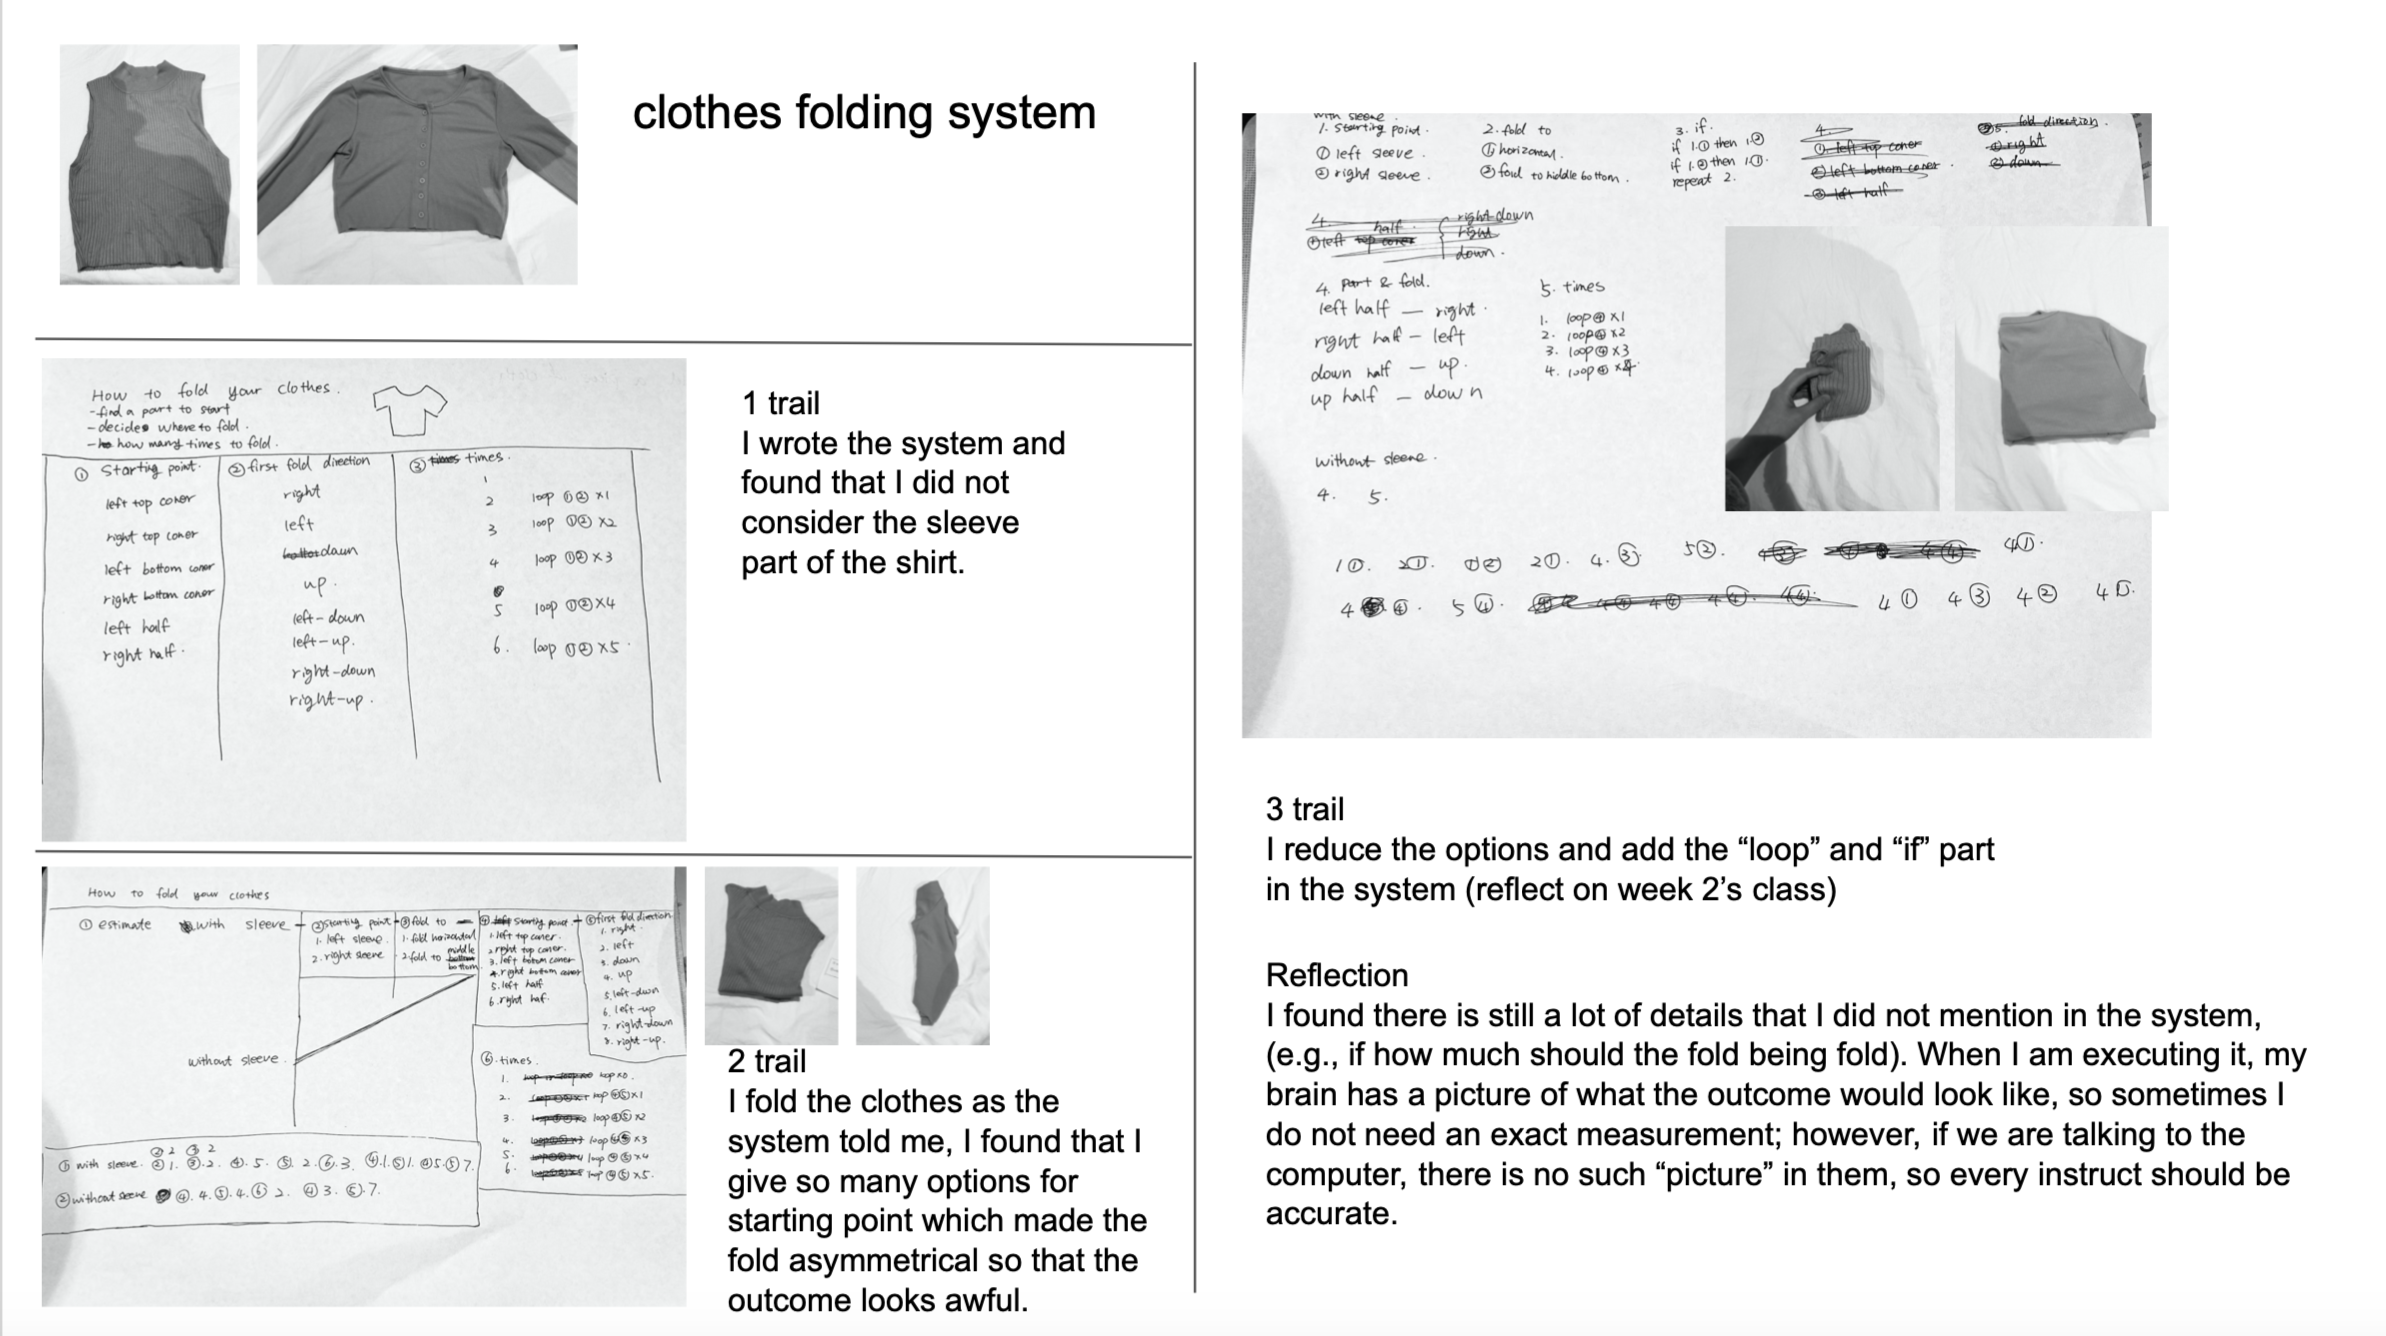 clothes folding system
How to fold your clothes.
-find a part to start
-decides where to fold.
- how many times to fold.
① Starting point.
left top coner
right top coner
left bottom coner
right bottom coner
left half
right half.
② first fold direction
right
left
down
up.
left-down
left-up.
right-down
right-up.
③ times.
1
2 loop ①② x1
3 loop ①② x2
4 loop ①② x3
5 loop ①② x4
6. loop ①② x5.
1 trail
I wrote the system and
found that I did not
consider the sleeve
part of the shirt.
How to fold your clothes
① estimate with sleeve
without sleeve.
② Starting point
1. left sleeve.
2. right sleeve
③ fold to
1. fold horizontal
2. fold to middle
bottom
④ Starting point
1. left top coner.
2. right top coner.
3. left bottom coner
4. right bottom coner
5. left half
6. right haf.
⑤ first fold direction
1. right.
2. left
3. down
4. up
5. left-down
6. left-up
7. right-down
8. right-up.
⑥. times.
1. loop x0.
2. loop ④⑤ x1
3. loop ④⑤ x2
4. loop ④⑤ x3
5. loop ④⑤ x4
6. loop ④⑤ x5.
① with sleeve.
② without sleeve
2 trail
I fold the clothes as the
system told me, I found that I
give so many options for
starting point which made the
fold asymmetrical so that the
outcome looks awful.
with sleeve.
1. Starting point.
① left sleeve.
② right sleeve.
2. fold to
① horizontal.
② foul to middle bottom.
3. if.
if 1.① then 1.②
if 1.② then 1.①.
repeat 2.
4. Part & fold.
left half — right.
right half — left
down half — up.
up half — down
5. times
1. loop④ x1
2. loop④ x2
3. loop④ x3
4. loop④ x4.
without sleeve.
4. 5.
1①. 2①. 1② 2①. 4.③. 5②. 4①.
4④. 5④. 4① 4③ 4② 4①.
3 trail
I reduce the options and add the “loop” and “if” part
in the system (reflect on week 2’s class)
Reflection
I found there is still a lot of details that I did not mention in the system,
(e.g., if how much should the fold being fold). When I am executing it, my
brain has a picture of what the outcome would look like, so sometimes I
do not need an exact measurement; however, if we are talking to the
computer, there is no such “picture” in them, so every instruct should be
accurate.